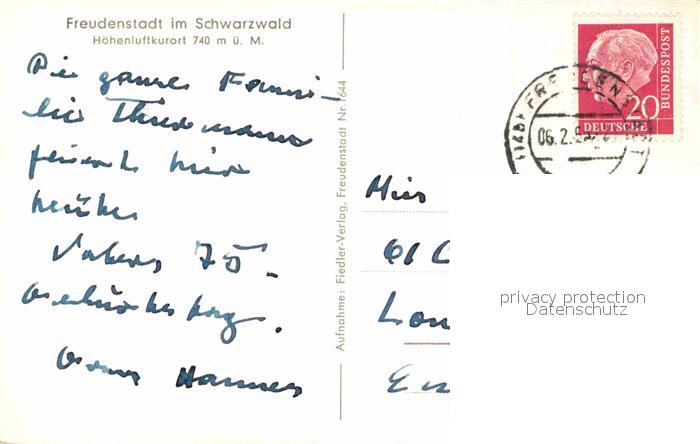 Freudenstadt im Schwarzwald
Höhenluftkurort 740 m ü. M.
Die ganze Fami-
lie
feiert hier
heute
Vaters 75.
Geburtstag.
Hannes
Aufnahme: Fiedler-Verlag, Freudenstadt Nr. 1644
20
DEUTSCHE
BUNDESPOST
06.2.5
Miss
Lon
privacy protection
Datenschutz